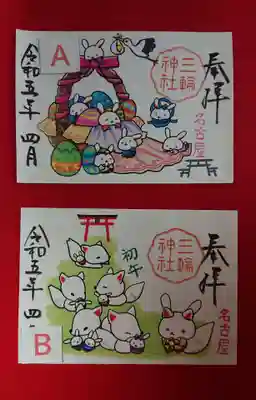 奉拝
三輪
神社
名古屋
令和五年 四月
A
奉拝
三輪
神社
名古屋
初午
令和五年 四
B